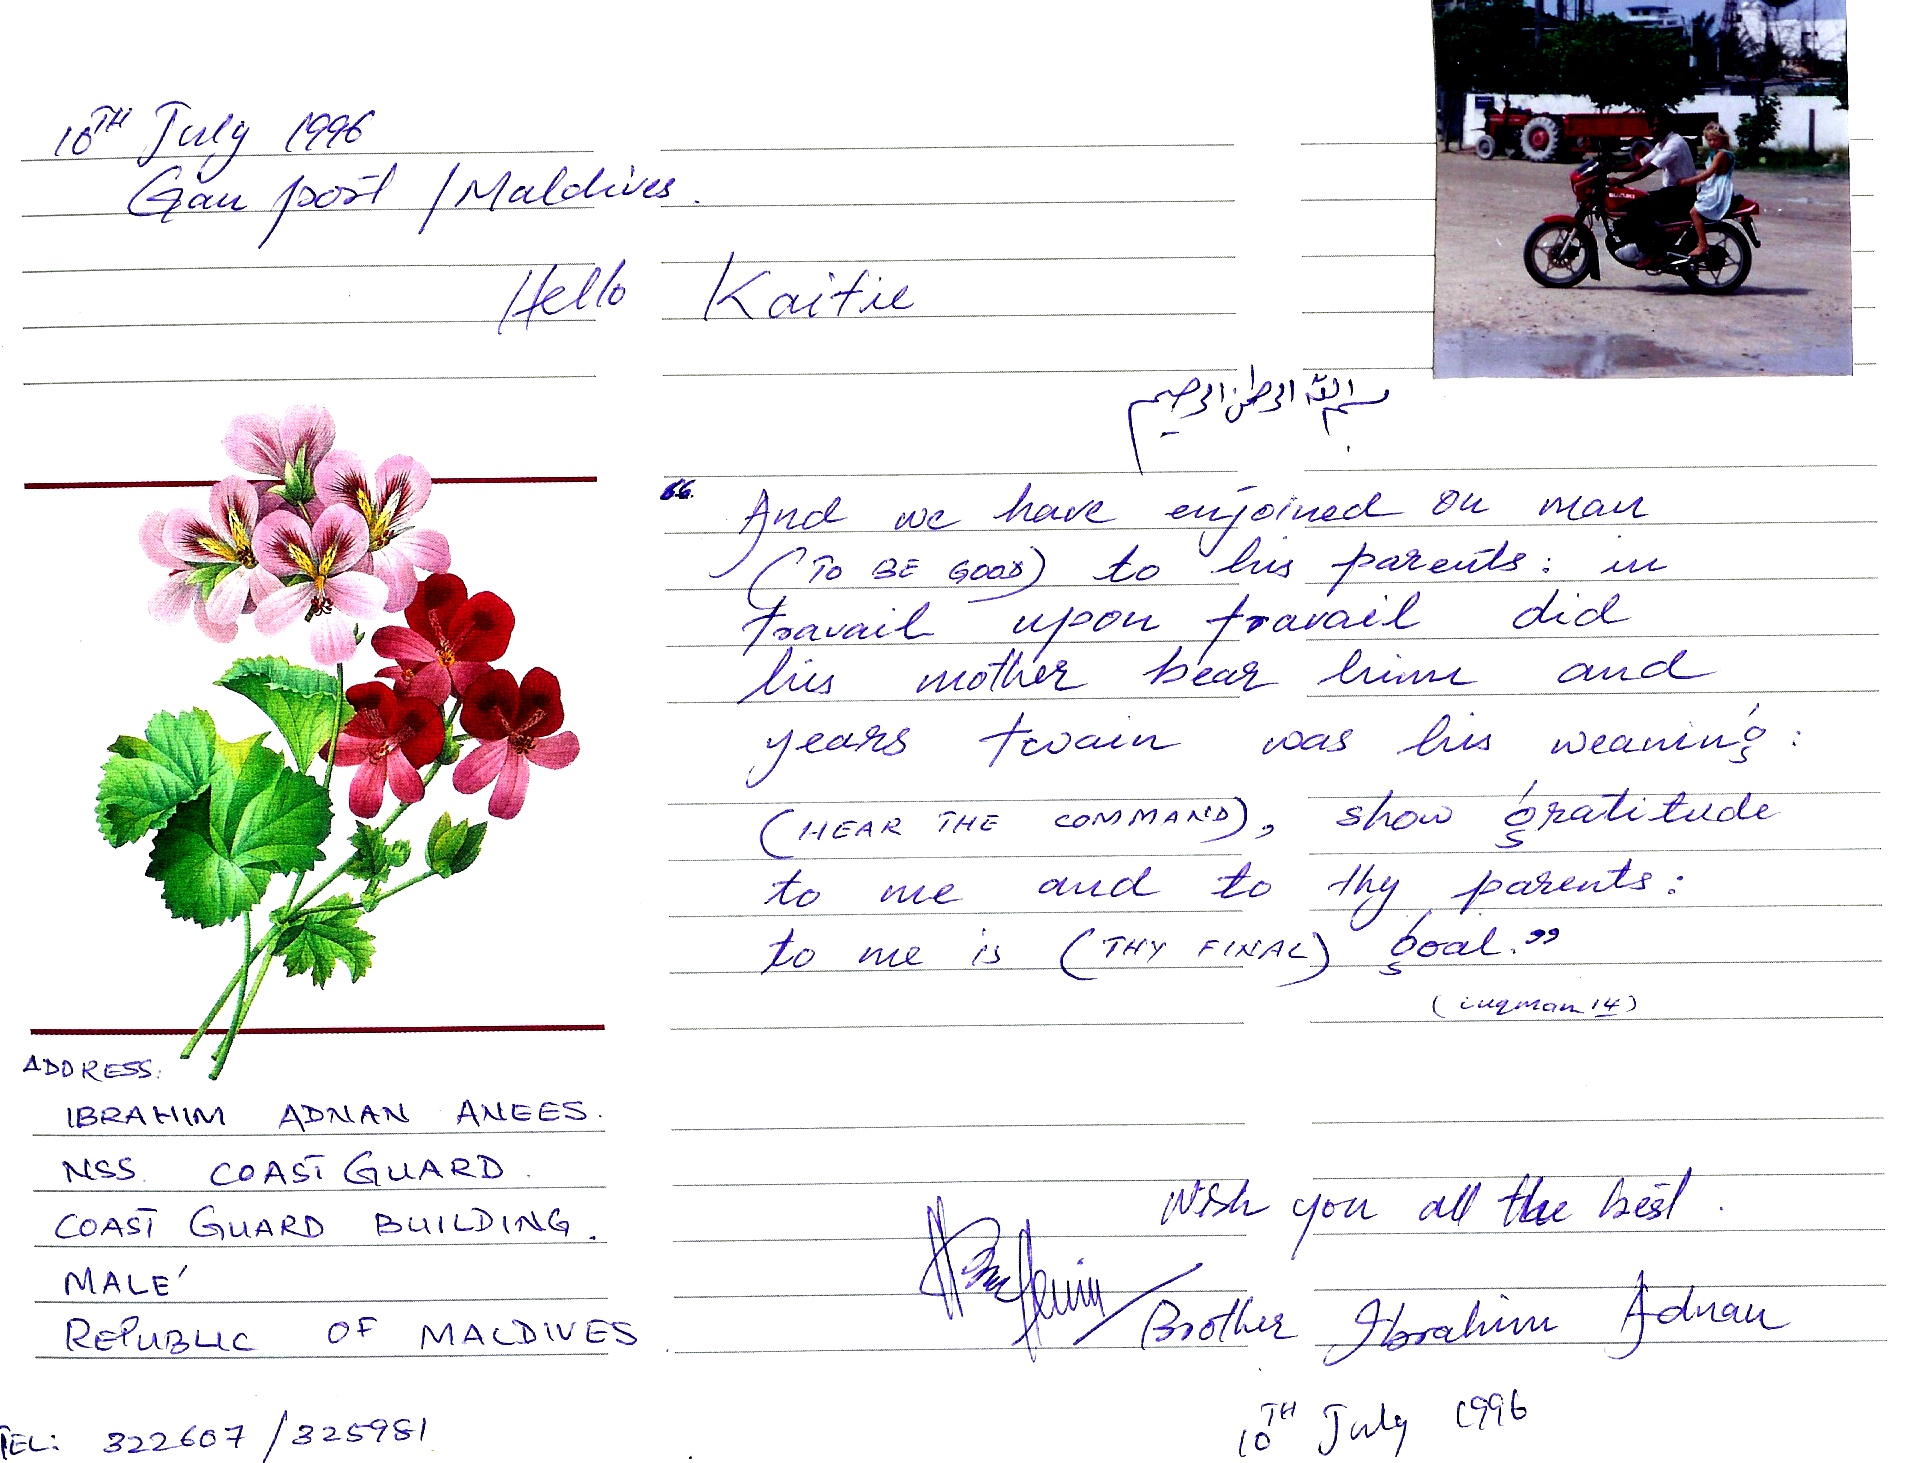 10TH July 1996
Gan post / Maldives.
Hello Kaitie
بسم الله الرحمن الرحيم
“ And we have enjoined on man
(TO BE GOOD) to his parents: in
travail upon travail did
his mother bear him and
years twain was his weaning:
(HEAR THE COMMAND), show gratitude
to me and to thy parents:
to me is (THY FINAL) goal.”
(Luqman 14)
ADDRESS:
IBRAHIM ADNAN ANEES.
NSS. COAST GUARD.
COAST GUARD BUILDING.
MALE'
REPUBLIC OF MALDIVES.
TEL: 322607 / 325981
Wish you all the best.
Brother Ibrahim Adnan
10TH July 1996
SUZUKI